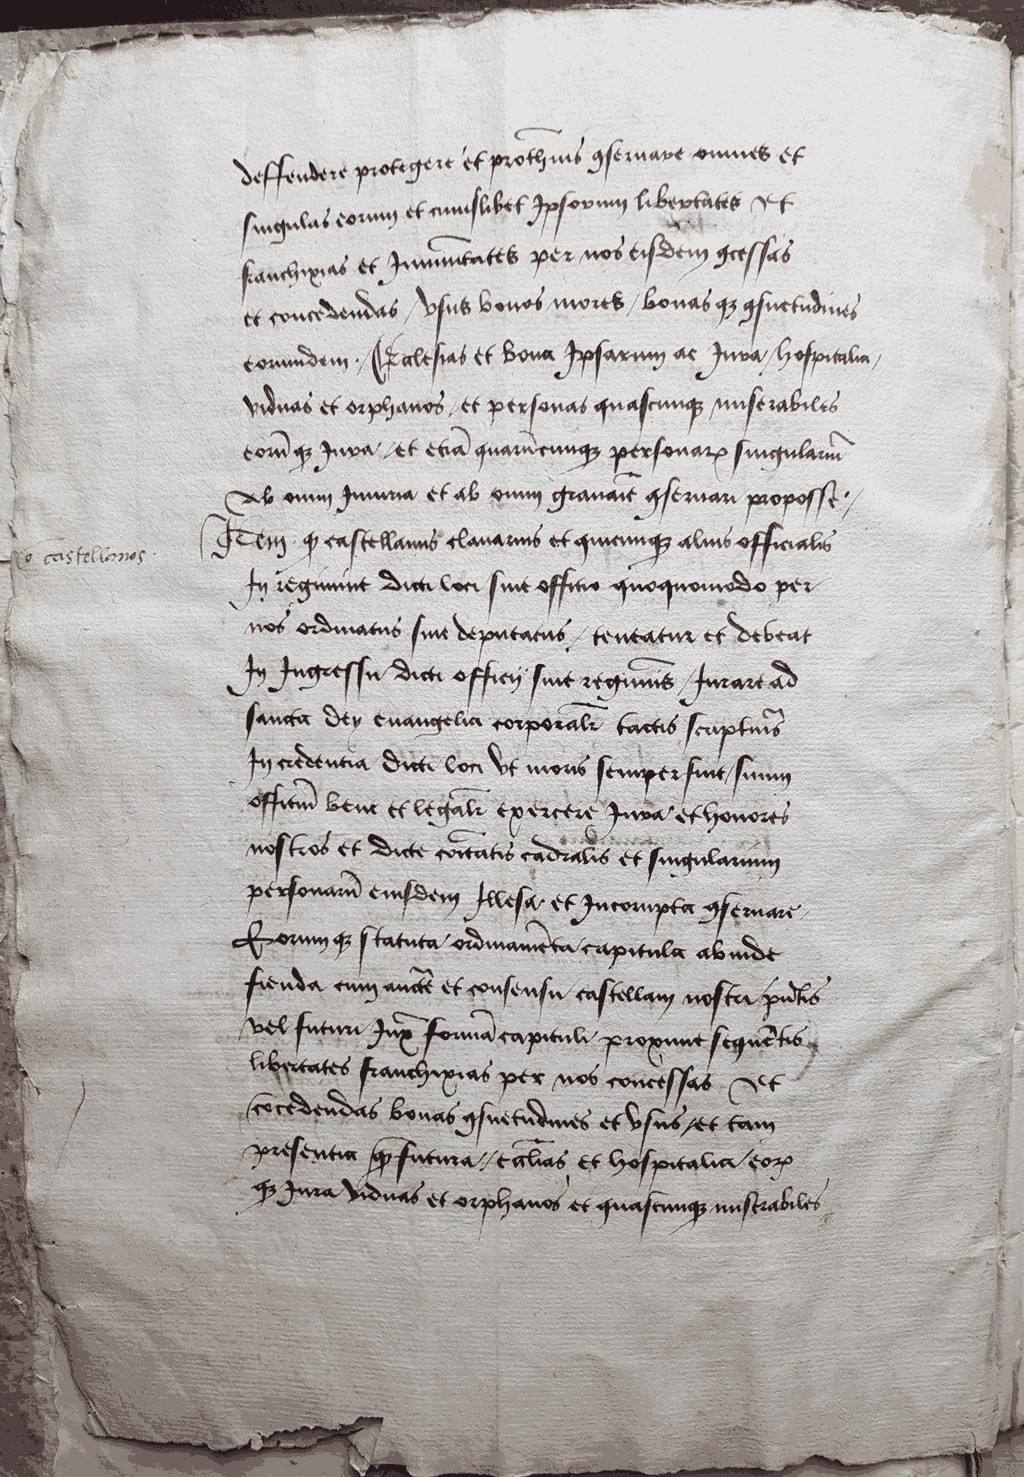 deffendere protegere et prothinus ꝯseruare omnes et
singulas eorum et cuiuslibet Ipsorum libertates Et
franchixias et Inmunitates per nos eisdem ꝯcessas
et concedendas / Vsus bonos mores / bonas qꝫ ꝯsuetudines
eorumdem · / Ecclesias et bona Ipsarum ac Jura / hospitalia /
viduas et orphanos / et personas quascunqꝫ miserabiles
eorū qꝫ Jura / et etiā quarūcunqꝫ personarꝝ singulariū
Ab omni Iniuria et ab omni grauaīe ꝯseruari proposse · /
Item ꝙ castellanus clauarius et quicunqꝫ alius officialis
vo castellanos ·
In regimine dicti loci siue offitio quoquomodo per
nos ordinatus siue deputatus / teneatur et debeat
In Ingressu dicti officij siue regiminis / Jurare ad
sancta dey euangelia corporalr̄ tactis scripturis
In credentia dicti loci Vt moris semper fuit / suum
offitiū bene et legalr̄ exercere Jura et honores
nostros et dicte coītatis cadralis et singularium
personarū eiusdem Illesa et Incorrupta ꝯseruare
Eorum qꝫ statuta ordinamēta capitula abinde
fienda cum aucte et consensu castellani nostri pn̄tis
vel futuri Juxͣ formā capituli proxime sequētis
libertates franchixias per nos concessas Et
cōcedendas bonas ꝯsuetudines et Vsus / et tam
presentia ꝙ̄ futura / ecclias et hospitalia / eoꝝ
qꝫ Jura viduas et orphanos et quascunqꝫ miserabiles